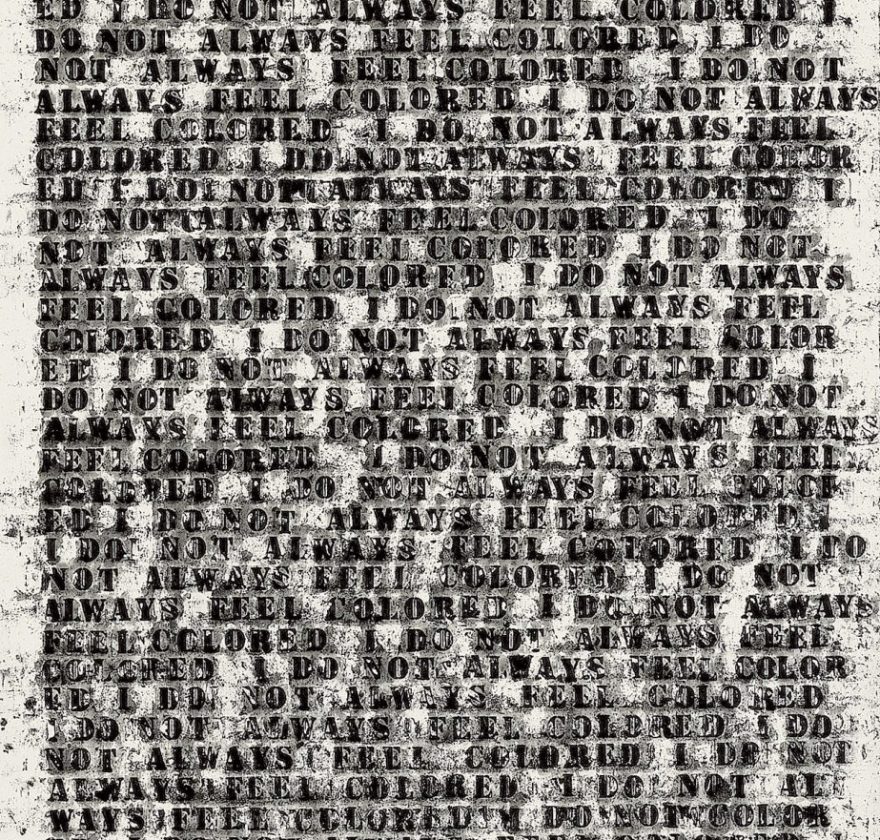 ED I DO NOT ALWAYS FEEL COLORED I
DO NOT ALWAYS FEEL COLORED I DO
NOT ALWAYS FEEL COLORED I DO NOT
ALWAYS FEEL COLORED I DO NOT ALWAYS
FEEL COLORED I DO NOT ALWAYS FEEL
COLORED I DO NOT ALWAYS FEEL COLOR
ED I DO NOT ALWAYS FEEL COLORED I
DO NOT ALWAYS FEEL COLORED I DO
NOT ALWAYS FEEL COLORED I DO NOT
ALWAYS FEEL COLORED I DO NOT ALWAYS
FEEL COLORED I DO NOT ALWAYS FEEL
COLORED I DO NOT ALWAYS FEEL COLOR
ED I DO NOT ALWAYS FEEL COLORED I
DO NOT ALWAYS FEEL COLORED I DO NOT
ALWAYS FEEL COLORED I DO NOT ALWAYS
FEEL COLORED I DO NOT ALWAYS FEEL
COLORED I DO NOT ALWAYS FEEL COLOR
ED I DO NOT ALWAYS FEEL COLORED
I DO NOT ALWAYS FEEL COLORED I DO
NOT ALWAYS FEEL COLORED I DO NOT
ALWAYS FEEL COLORED I DO NOT ALWAYS
FEEL COLORED I DO NOT ALWAYS FEEL
COLORED I DO NOT ALWAYS FEEL COLOR
ED I DO NOT ALWAYS FEEL COLORED
I DO NOT ALWAYS FEEL COLORED I DO
NOT ALWAYS FEEL COLORED I DO NOT
ALWAYS FEEL COLORED I DO NOT AL
WAYS FEEL COLORED I DO NOT COLOR